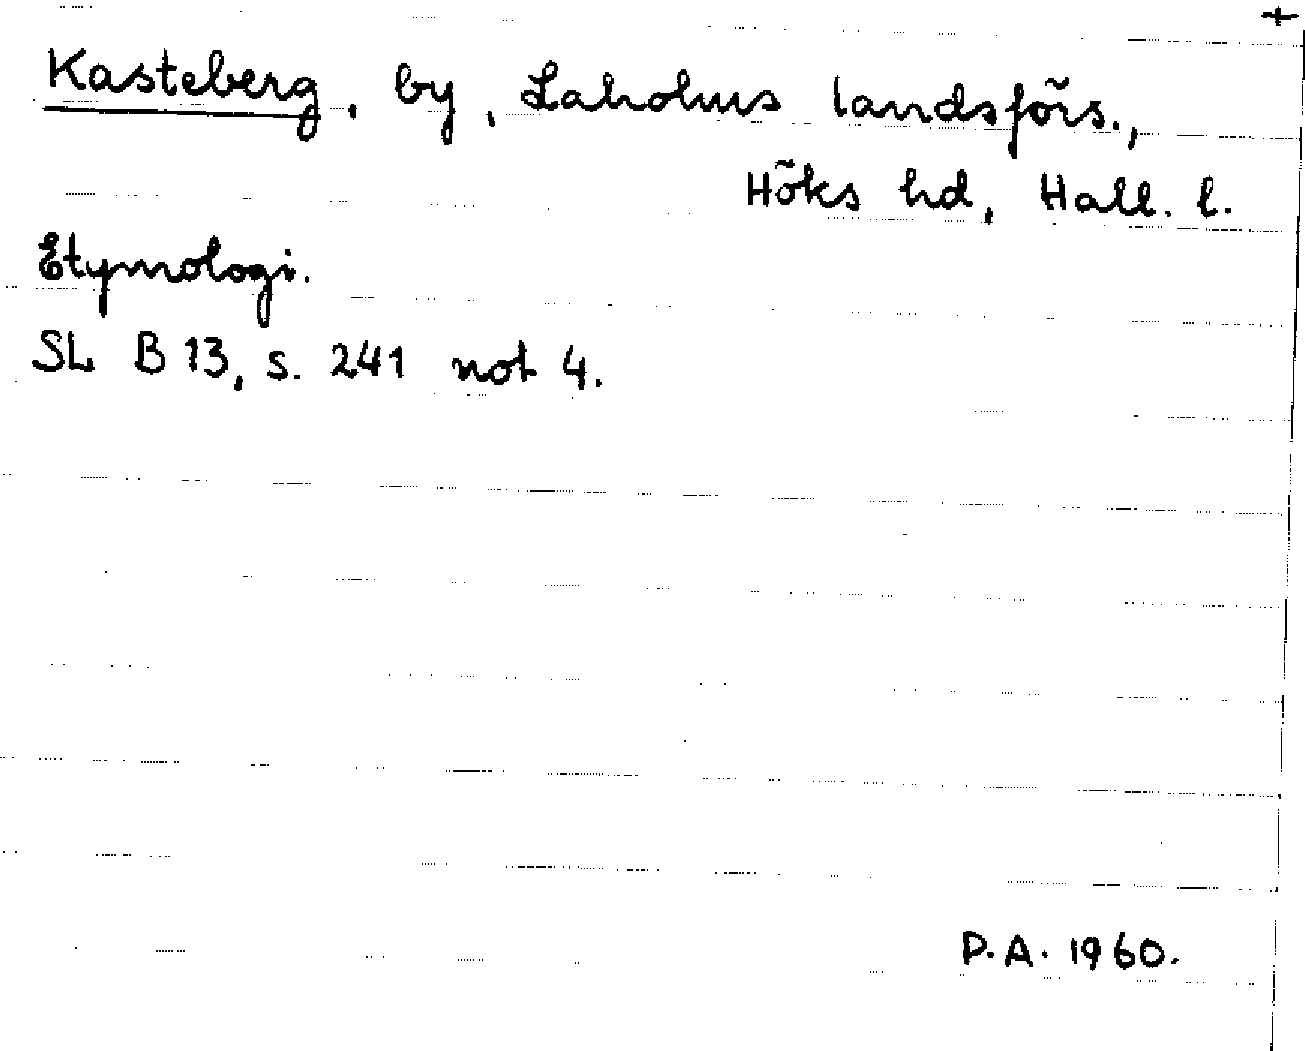 +
Kasteberg, by, Laholms landsförs.,
Höks hd, Hall. l.
Etymologi.
SL B 13, s. 241 not 4.
P.A. 1960.